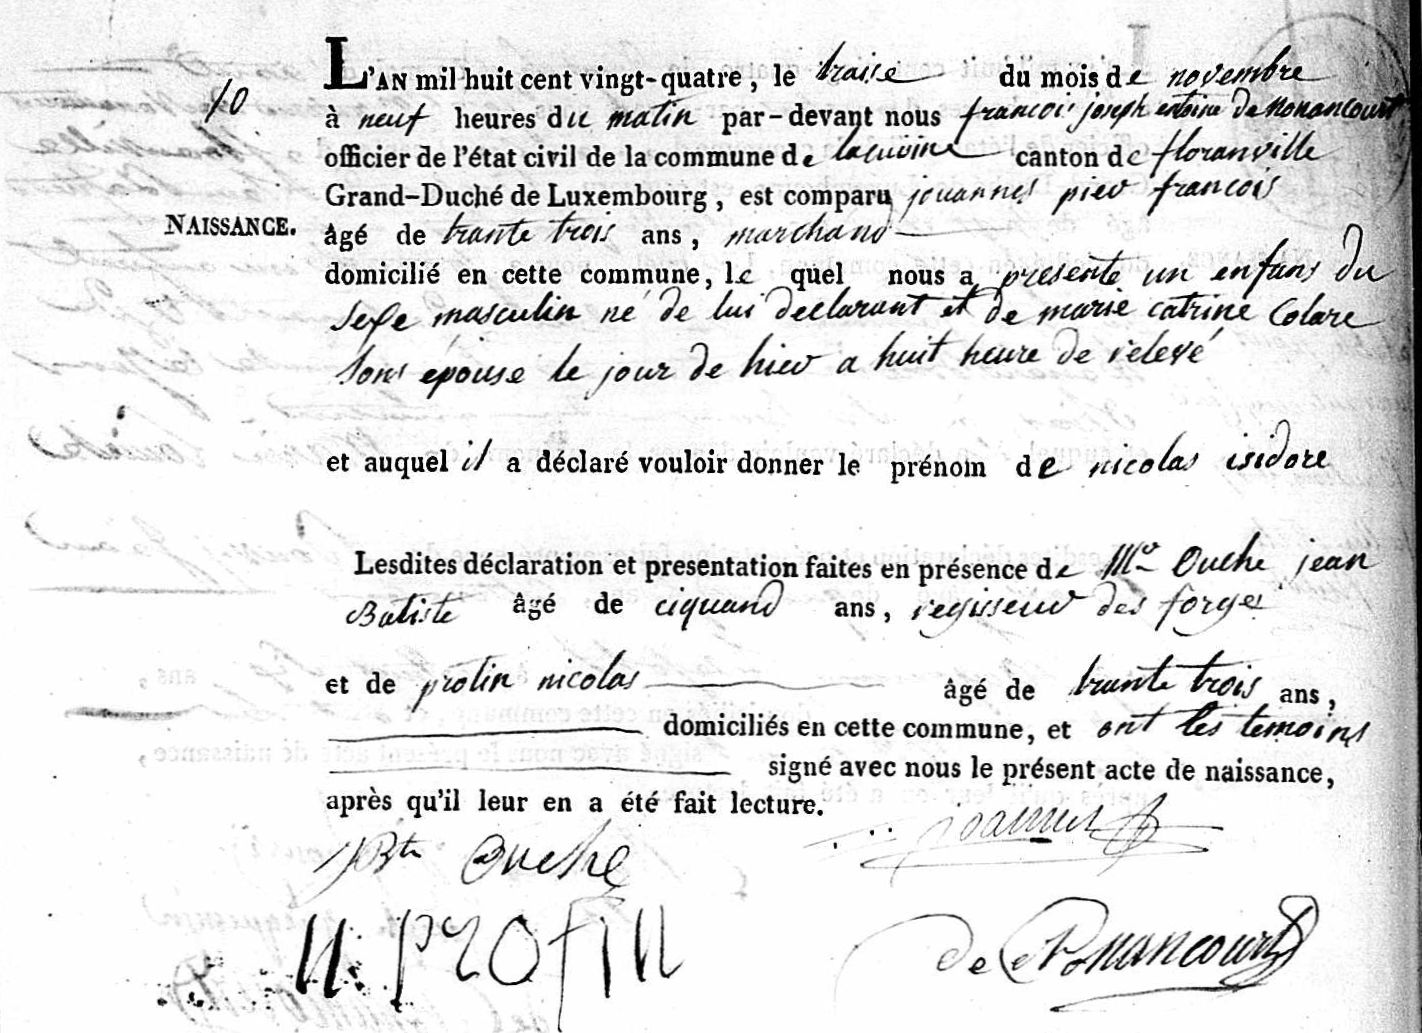 10
NAISSANCE.
L'AN mil huit cent vingt-quatre, le traise du mois de novembre
à neuf heures du matin par-devant nous francois joseph entoine de Nonancourt
officier de l'état civil de la commune de lacuisine canton de floranville
Grand-Duché de Luxembourg, est comparu jouannes pier francois
âgé de trante trois ans, marchand
domicilié en cette commune, le quel nous a presente un enfans du
sexe masculin né de lui declarant et de marie catrine Colare
sons épouse le jour de hier a huit heure de relevé
et auquel il a déclaré vouloir donner le prénom de nicolas isidore
Lesdites déclaration et presentation faites en présence de Mr Ouche jean
Batiste âgé de ciquand ans, regisseur des forges
et de protin nicolas âgé de trante trois ans,
domiciliés en cette commune, et ont les temoins
signé avec nous le présent acte de naissance,
après qu'il leur en a été fait lecture.
JBte Ouche
n. protin
de Nonancourt